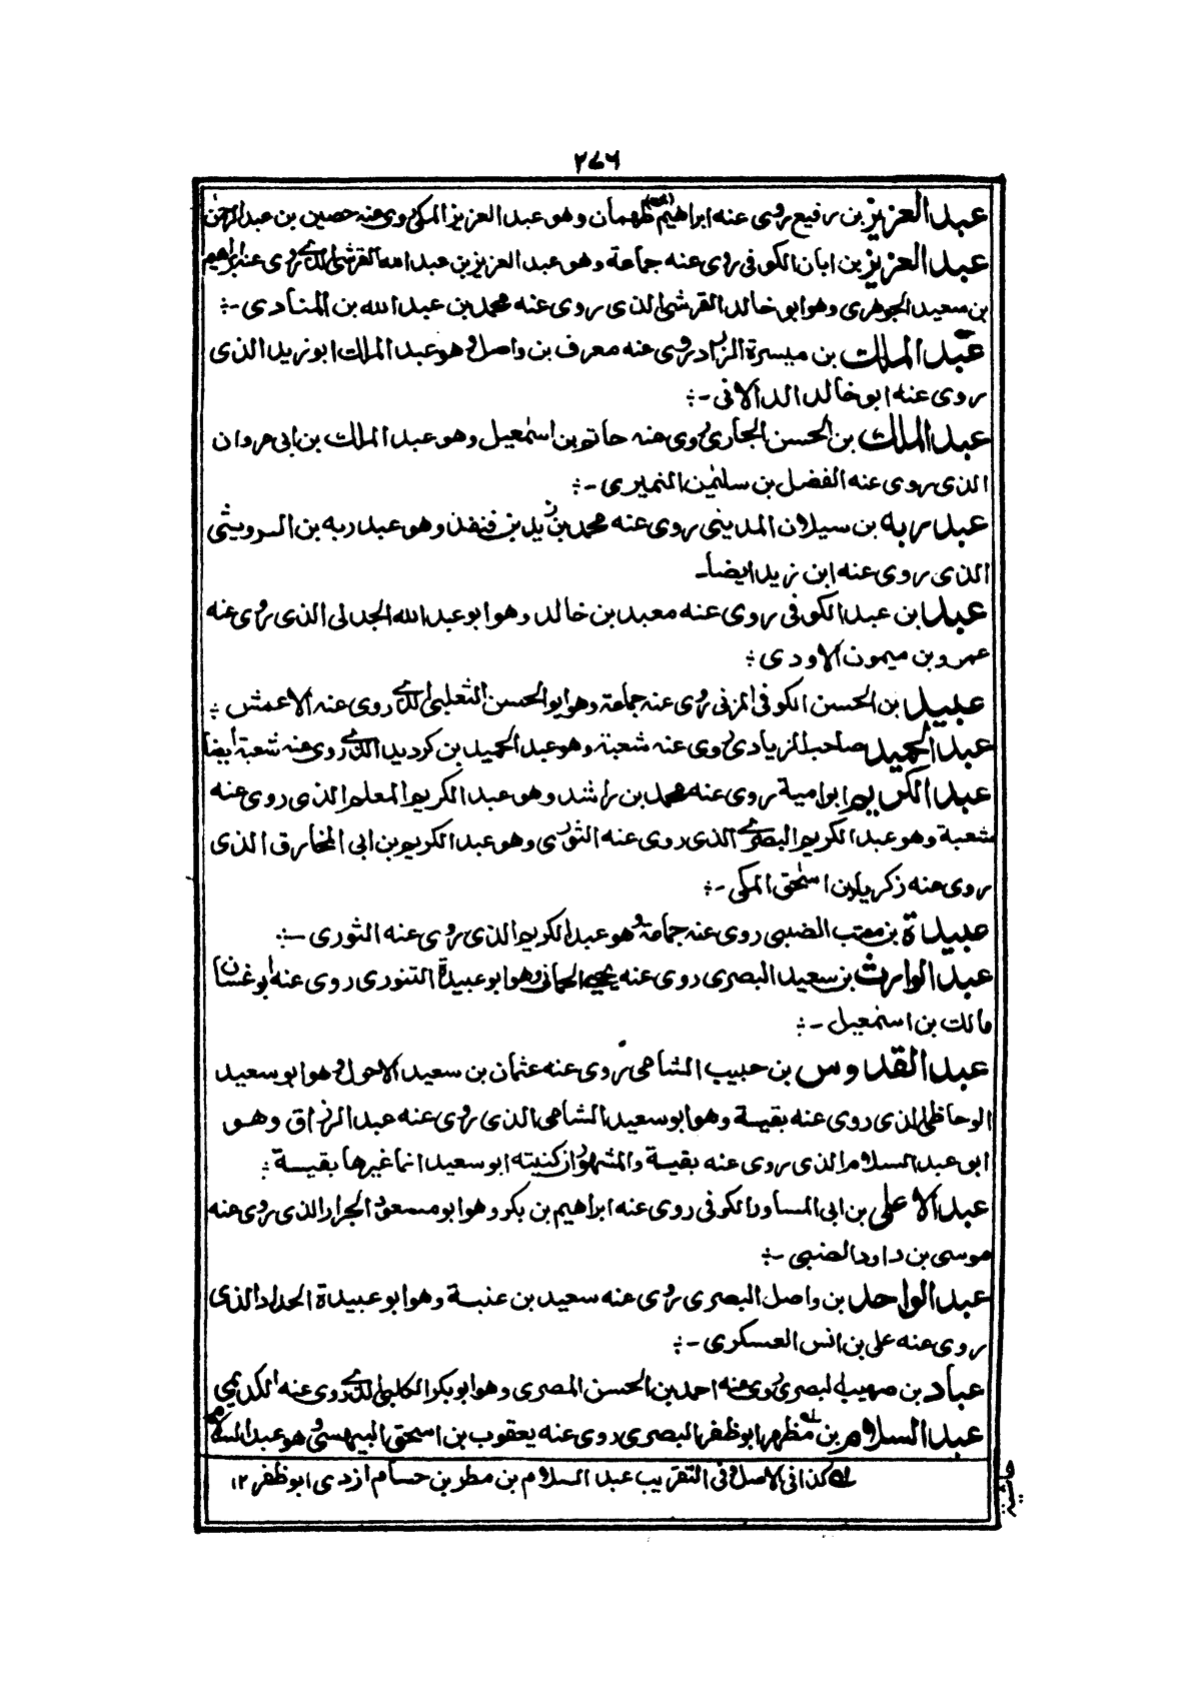 ٢٧٦
عبد العزيز بن رفيع روى عنه ابراهيم (بن) طهمان وهو عبد العزيز المكى روى عنه حصين بن عبد الرحمن
عبد العزيز بن ابان الكوفى روى عنه جماعة وهو عبد العزيز بن عبد الله القرشى الذى روى عنه ابراهيم
بن سعيد الجوهرى وهو ابو خالد القرشى الذى روى عنه محمد بن عبد الله بن المنادى -:
عبد الملك بن ميسرة الزراد روى عنه معرف بن واصل وهو عبد الملك ابو زيد الذى
روى عنه ابو خالد الدالانى -:
عبد الملك بن الحسن الجارى روى عنه حاتم بن اسمعيل وهو عبد الملك بن ابى مروان
الذى روى عنه الفضل بن سليمن النميرى -:
عبد ربه بن سيلان المدينى روى عنه محمد بن زيد بن قنفذ وهو عبد ربه بن الدويشى
الذى روى عنه ابن زيد ايضا۔
عبد بن عبد الكوفى روى عنه معبد بن خالد وهو ابو عبد الله الجدلى الذى روى عنه
عمرو بن ميمون الاودى :
عبيد بن الحسن الكوفى المزنى روى عنه جماعة وهو ابو الحسن الثعلبى الذى روى عنه الاعمش :
عبد الحميد صاحب الزيادى روى عنه شعبة وهو عبد الحميد بن كرديد الذى روى عنه شعبة ايضا
عبد الكريم ابو امية روى عنه محمد بن راشد وهو عبد الكريم المعلم الذى روى عنه
شعبة وهو عبد الكريم البصرى الذى روى عنه الثورى وهو عبد الكريم بن ابى المخارق الذى
روى عنه زكريا بن اسحق المكى -:
عبيدة بن معتب الضبى روى عنه جماعة وهو عبد الكريم الذى روى عنه الثورى -:
عبد الوارث بن سعيد البصرى روى عنه يحيى الحمانى وهو ابو عبيدة التنورى روى عنه ابو غسان
مالك بن اسمعيل -:
عبد القدوس بن حبيب الشامى روى عنه عثمان بن سعيد الاحول وهو ابو سعيد
الوحاظى الذى روى عنه بقية وهو ابو سعيد الشامى الذى روى عنه عبد الرزاق وهو
ابو عبد السلام الذى روى عنه بقية والمشهور ان كنيته ابو سعيد انما غيرها بقية :
عبد الاعلى بن ابى المساور الكوفى روى عنه ابراهيم بن بكر وهو ابو مسعود الجرار الذى روى عنه
موسى بن داود الضبى -:
عبد الواحد بن واصل البصرى روى عنه سعيد بن عنبسة وهو ابو عبيدة الحداد الذى
روى عنه على بن انس العسكرى -:
عباد بن صهيب البصرى روى عنه احمد بن الحسن المصرى وهو ابو بكر الكليبى الذى روى عنه الكديمى
عبد السلام بن مظهر ابو ظفر البصرى روى عنه يعقوب بن اسحق البيهسى وهو عبد السلام
له كذا فى الاصل وفى التقريب عبد السلام بن مطهر بن حسام ازدى ابو ظفر ١٢
حاشية